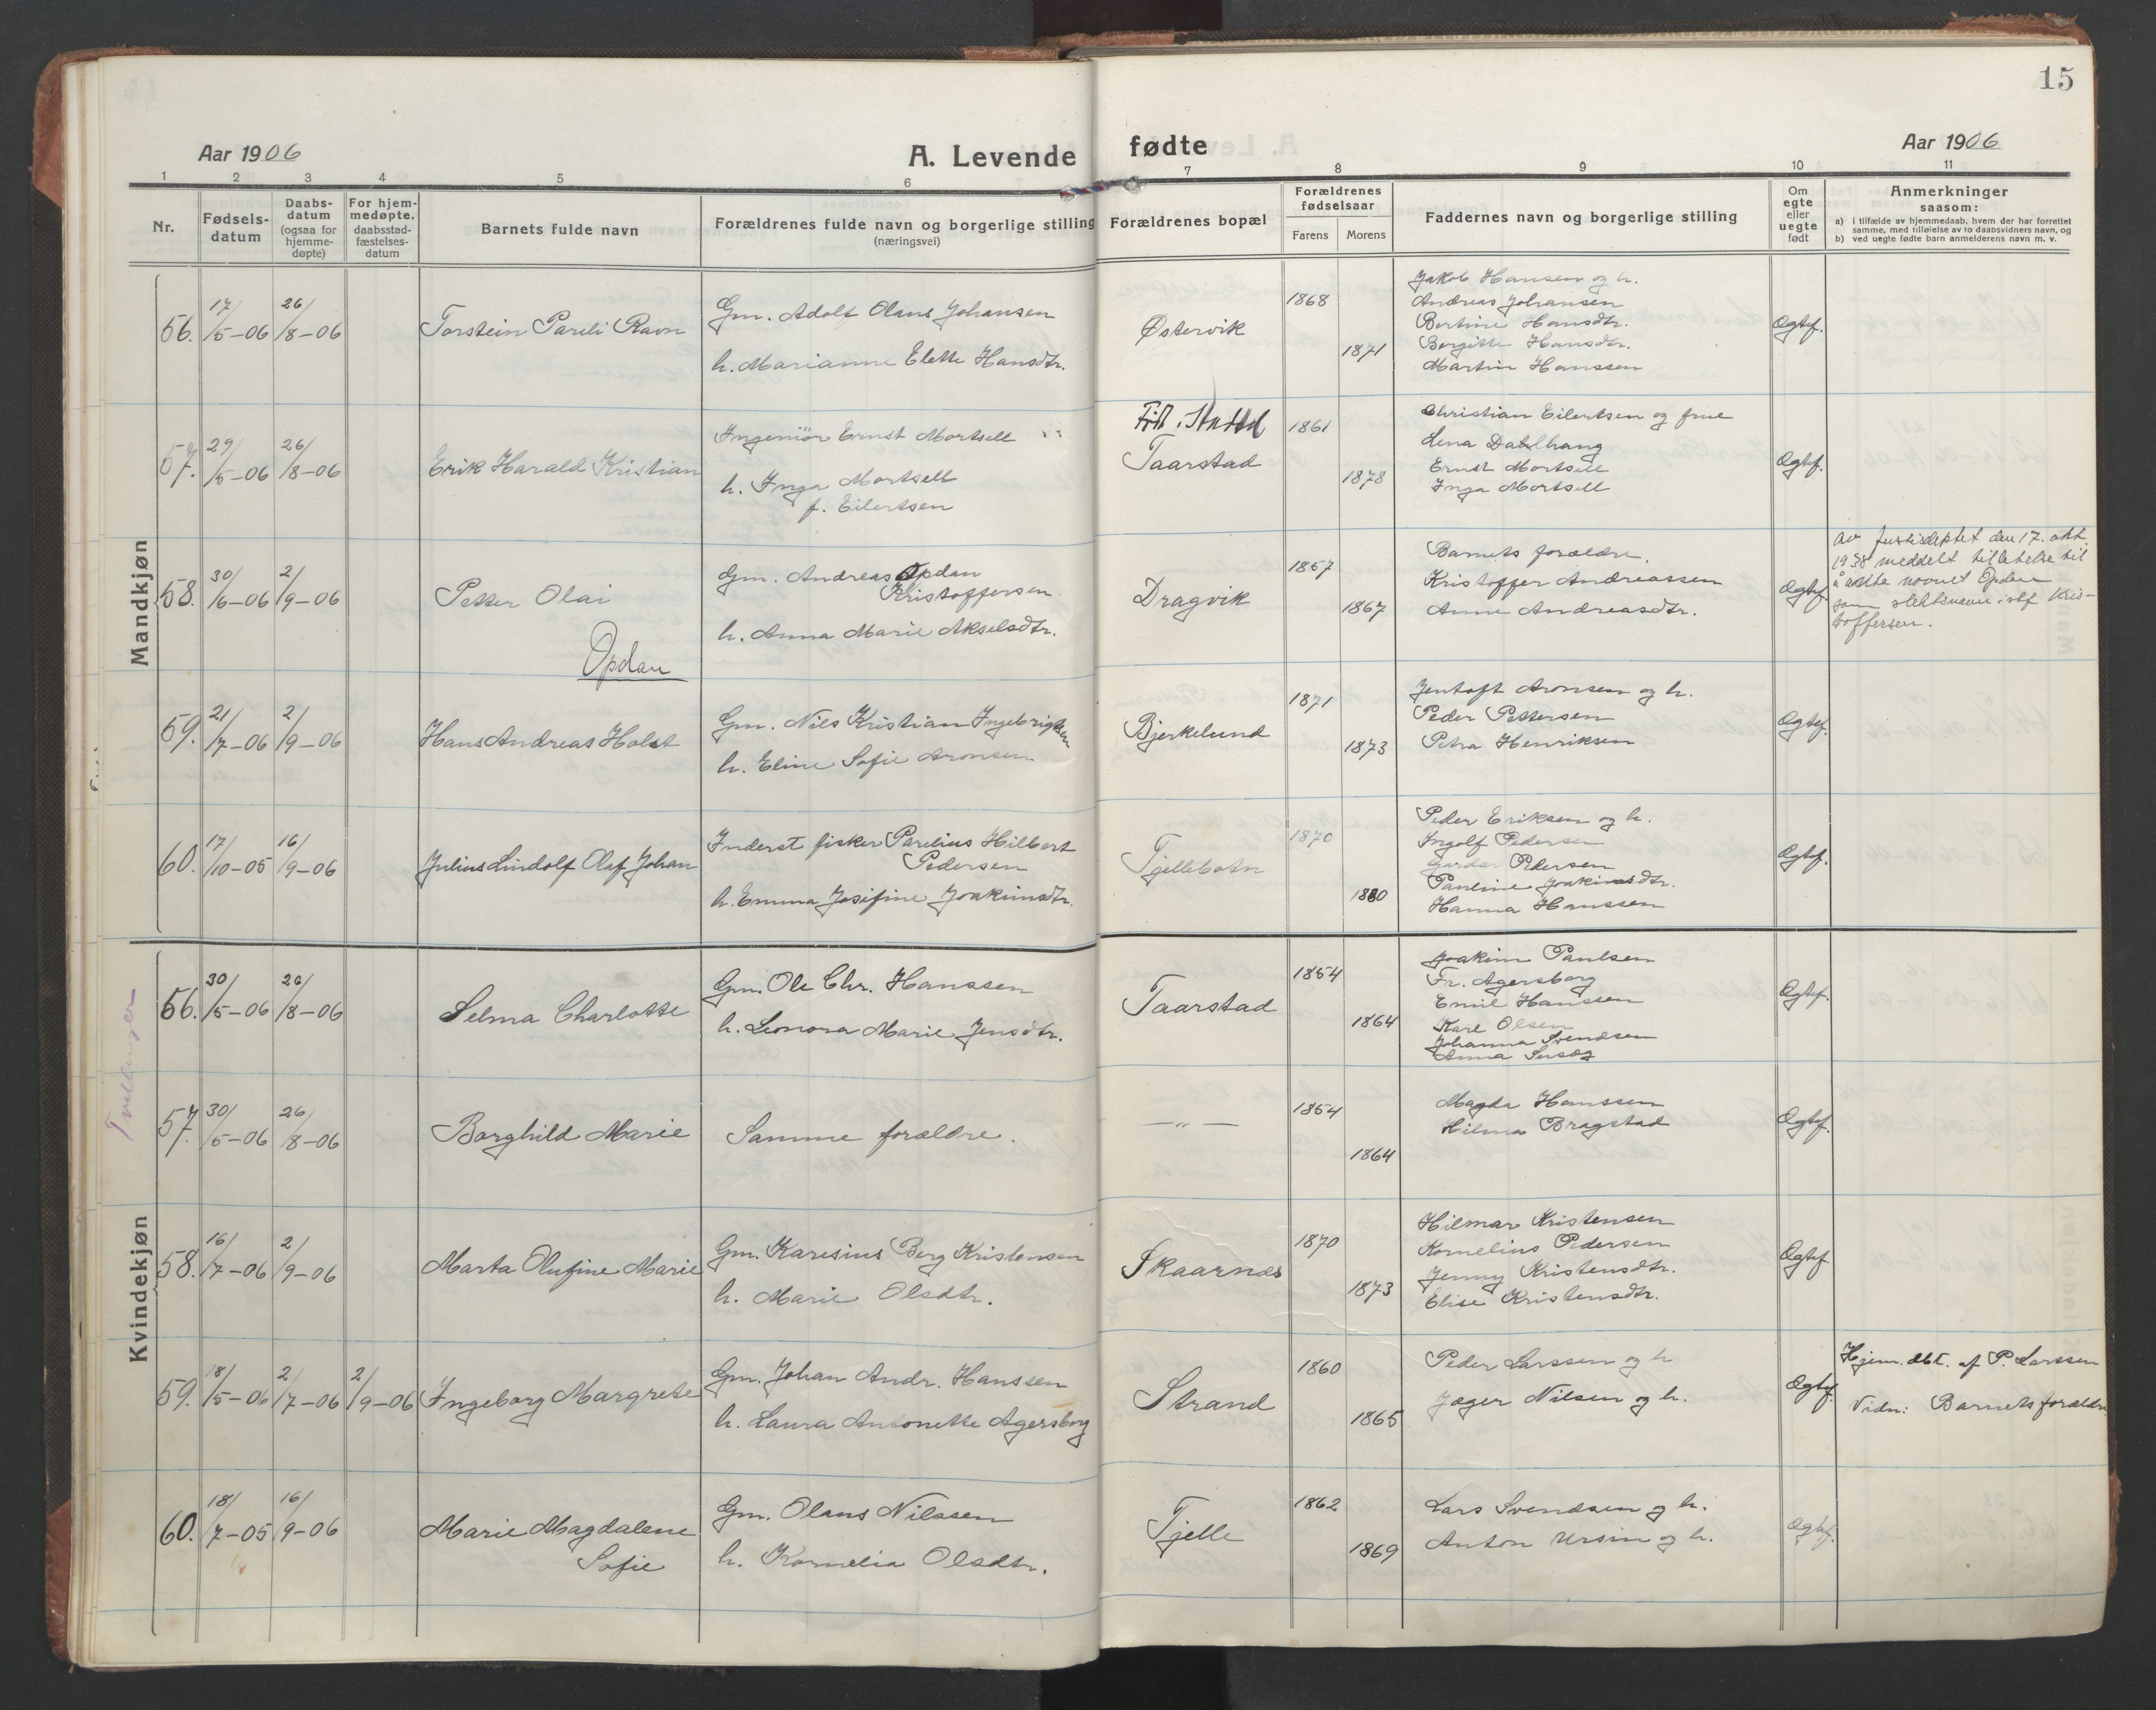 15
Aar 1906
A. Levende fødte
Aar 1906
1 2 3 4 5 6 7 8 9 10 11
Nr.
Fødselsdatum
Daabsdatum (ogsaa for hjemmedøpte)
For hjemmedøpte, daabsstadfæstelsesdatum
Barnets fulde navn
Forældrenes fulde navn og borgerlige stilling
(næringsvei)
Forældrenes bopæl
Forældrenes fødselsaar
Farens Morens
Faddernes navn og borgerlige stilling
Om egte eller uegte født
Anmerkninger
saasom:
a) i tilfælde av hjemmedaab, hvem der har forrettet samme, med tilføielse av to daabsvidners navn, og
b) ved uegte fødte barn anmelderens navn m. v.
Mandkjøn
56. 17/5-06 26/8-06 Torstein Pareli Ravn
Gm. Adolf Olaus Johansen
h. Marianne Elette Hansdtr.
Østervik 1868 1871
Jakob Hansen og h.
Andreas Johansen
Bertine Hansdtr.
Bergitte Hansdtr.
Martin Hanssen
Ægtef.
57. 29/5-06 26/8-06 Erik Harald Kristian
Ingeniør Ernst Mortsell
h. Inga Mortsell
f. Eilertsen
Taarstad 1861 1878
Christian Eilertsen og frue
Lena
Ernst Mortsell
Inga Mortsell
Ægtef.
58. 30/6-06 2/9-06 Petter Olai
Opdan
Gm. Andreas Opdan
Kristoffersen
h. Anna Marie Akselsdtr.
Dragvik 1867 1867
Barnets forældre.
Kristoffer Andreassen
Anne Andreasdtr.
Ægtef.
Av justisdeptet den 17. okt.
1938 meddelt tillatelse til
å anta navnet Opdan
som slektsnavn istf Kris-
toffersen.
59. 21/7-06 2/9-06 Hans Andreas Holst
Gm. Nils Kristian Ingebrigtsen
h. Eline Sofie Aronsen
Bjerkelund 1871 1873
Jentoft Aronsen og h.
Peder Pettersen
Petra Henriksen
Ægtef.
60. 17/10-05 16/9-06 Julius Lindolf Olaf Johan
Inderst fisker Parelius Hilbert
Pedersen
h. Emma Josifine Joakimsdtr.
Tjellebotn 1870 1880
Peder Eriksen og h.
Ingolf Pedersen
Gardar Pedersen
Pauline Joakimsdtr.
Hanna Hanssen
Ægtef.
Kvindekjøn
Tvillinger
56. 30/5-06 26/8-06 Selma Charlotte
Gm. Ole Chr. Hanssen
h. Leonora Marie Jensdtr.
Taarstad 1854 1864
Joakim Paulsen
Fr. Agersborg
Emil Hanssen
Karl Olsen
Johanna Svendsen
Anna
Ægtef.
57. 30/5-06 26/8-06 Borghild Marie
Samme forældre.
—„— 1854 1864
Magda Hanssen
Hilma Bragstad
Ægtef.
58. 16/7-06 2/9-06 Marta Olufine Marie
Gm. Karesius Berg Kristensen
h. Marie Olsdtr.
Skaarnes 1870 1873
Hilmar Kristensen
Kornelius Pedersen
Jenny Kristensdtr.
Elise Kristensdtr.
Ægtef.
59. 18/5-06 2/7-06 2/9-06 Ingeborg Margrete
Gm. Johan Andr. Hanssen
h. Laura Antonette Agersborg
Strand 1860 1865
Peder Larssen og h
Jæger Nilsen og h.
Ægtef.
Hjem. dbt. af P. Larssen
Vidn: Barnets forældre
60. 18/7-05 16/9-06 Marie Magdalene
Sofie
Gm. Olaus Nilssen
h. Kornelia Olsdtr.
Tjelle 1862 1869
Lars Svendsen og h.
Anton Ursin og h.
Ægtef.